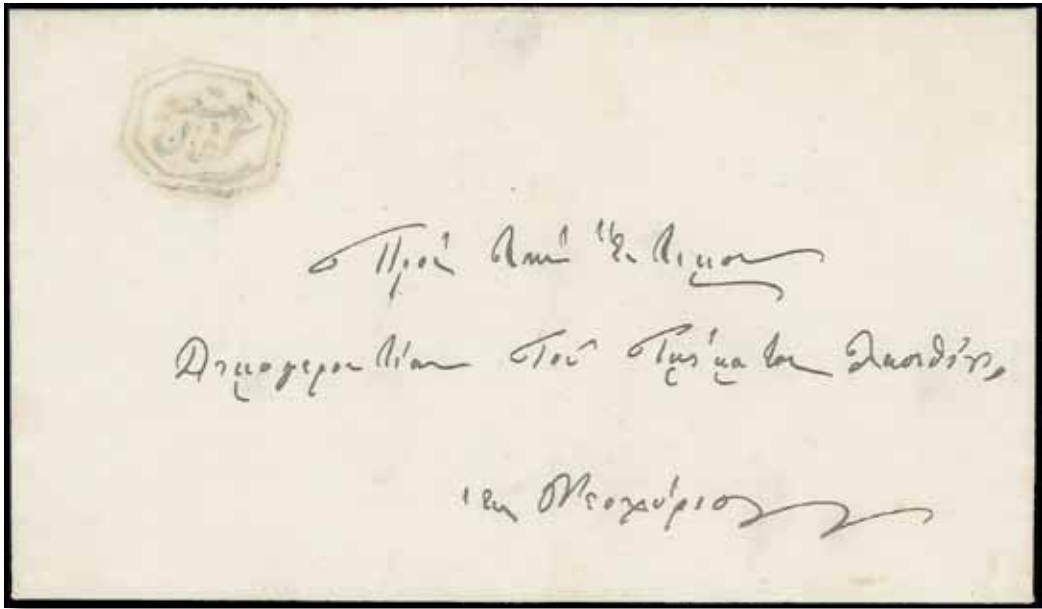 Πρὸς τὴν Ἔντιμον
Δημογεροντίαν τοῦ Τμήματος Λασιθίου
εἰς Νεοχώριον